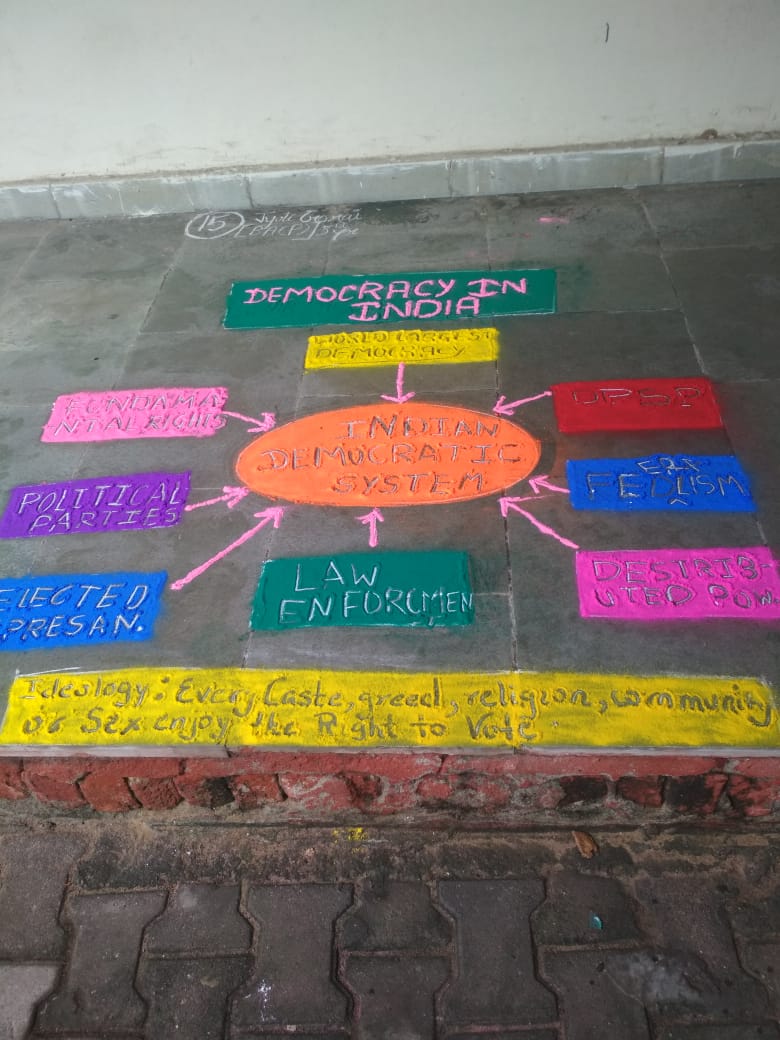 15
DEMOCRACY IN
INDIA
WORLD LARGEST
DEMOCRACY
FUNDAMA
NTAL RIGHTS
UPSP
INDIAN
DEMOCRATIC
SYSTEM
POLITICAL
PARTIES
ERA
FEDLISM
ELECTED
PRESAN.
LAW
ENFORCMEN
DESTRIB-
UTED POW.
Ideology: Every Caste, greed, religion, community
or Sex enjoy the Right to Vote.